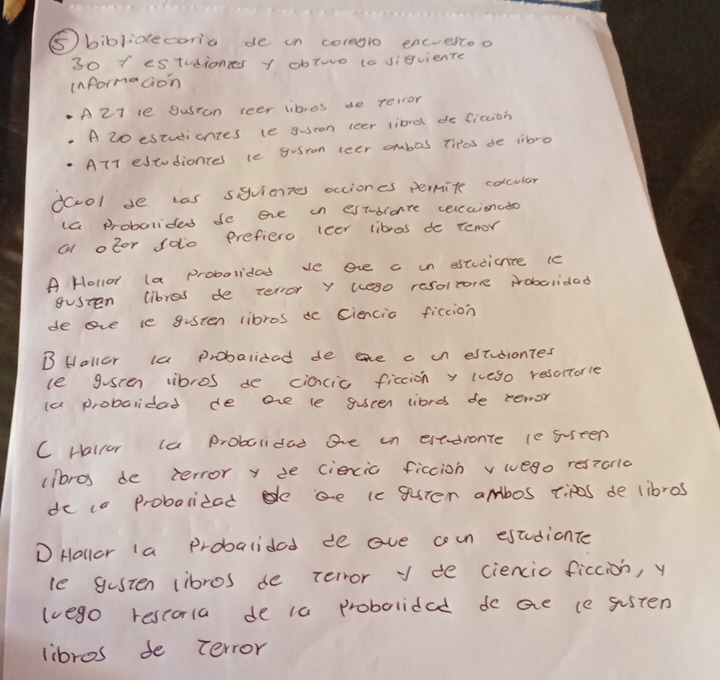 ⑤ bibliotecario de un colegio encuesto o
30 y estudiantes y obtuvo la siguiente
información
• A 27 le gustan leer libros de terror
• A 20 estudiantes le gustan leer libros de ficción
• A 17 estudiantes le gustan leer ambos tipos de libro
¿cual de las siguientes acciones permite calcular
la probabilidad de que un estudiante seleccionado
al azar solo prefiero leer libros de terror
A Hallar la probalidad de que a un estudiante le
gusten libros de terror y luego resaltarle probalidad
de que le gusten libros de ciencia ficción
B Hallar la probalidad de que a un estudiantes
le gusten libros de ciencia ficción y luego resartarle
la probalidad de que le gusten libros de terror
C Hallar la probalidad que un estudiante le gusten
libros de terror y de ciencia ficción y luego restarla
de la probalidad de que le gusten ambos tipos de libros
D Hallar la probalidad de que a un estudiante
le gusten libros de terror y de ciencia ficción, y
luego restarla de la probalidad de que le gusten
libros de terror